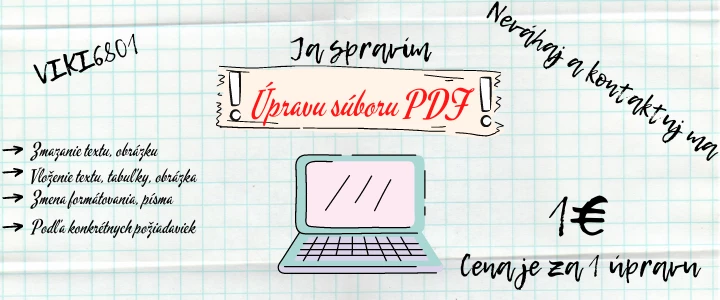 VIKI6801
Ja spravím
Neváhaj a kontaktuj ma
! Úpravu súboru PDF !
→ Zmazanie textu, obrázku
→ Vloženie textu, tabuľky, obrázka
→ Zmena formátovania, písma
→ Podľa konkrétnych požiadaviek
1€
Cena je za 1 úpravu